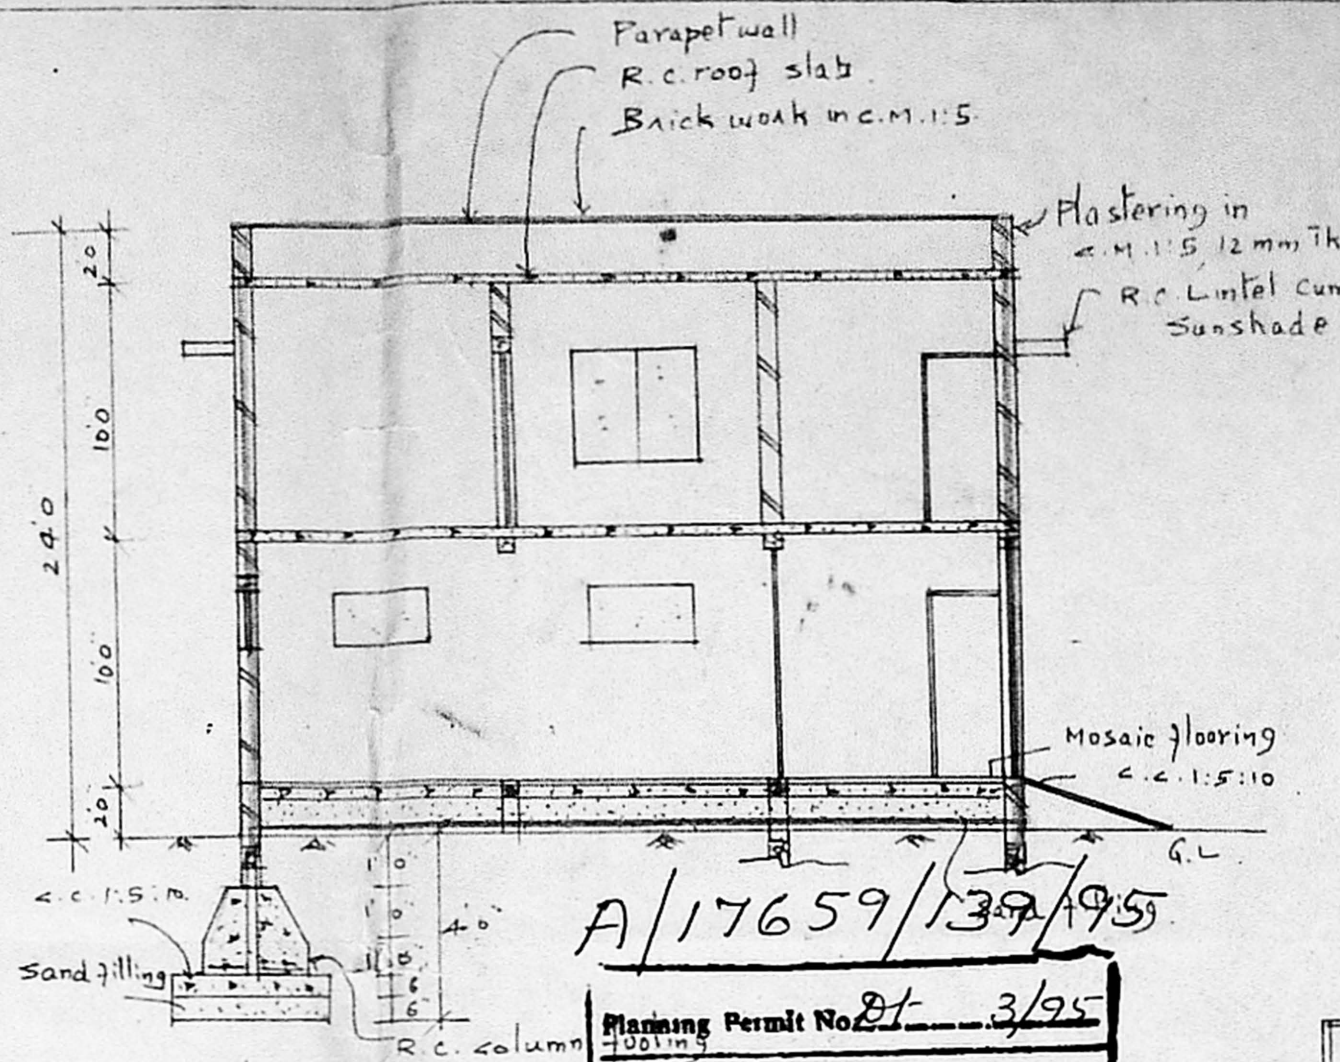 Parapet wall
R.C. roof slab
Brick work in C.M. 1:5
Plastering in
C.M. 1:5, 12 mm Tk
R.C. Lintel Cum
Sunshade
2'0
10'0
24'0
10'0
2'0
Mosaic flooring
C.C. 1:5:10
G.L
C.C. 1:5:10
Sand filling
1' 0
1' 0
1' 0
6
6
4'0
R.C. column footing
Sand filling
A/17659/139/95
Planning Permit No. Dt 3/95